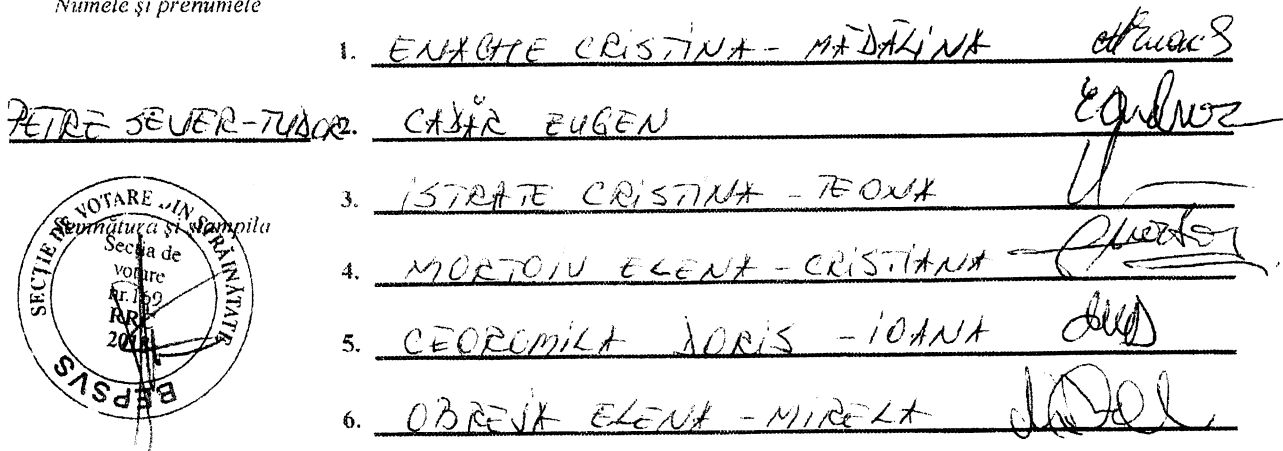 Numele și prenumele
1. ENACHE CRISTINA - MĂDĂLINA
PETRE SEVER-TUDOR
2. CADĂR EUGEN
3. ISTRATE CRISTINA - TEONA
Semnătura și ștampila
SECȚIE DE VOTARE DIN STRĂINĂTATE
Secția de
votare
nr. 169
BEPSVS
4. MOROTOIU ELENA - CRISTIANA
5. CEOROMILA DORIS - IOANA
6. OBREJA ELENA - MIRELA